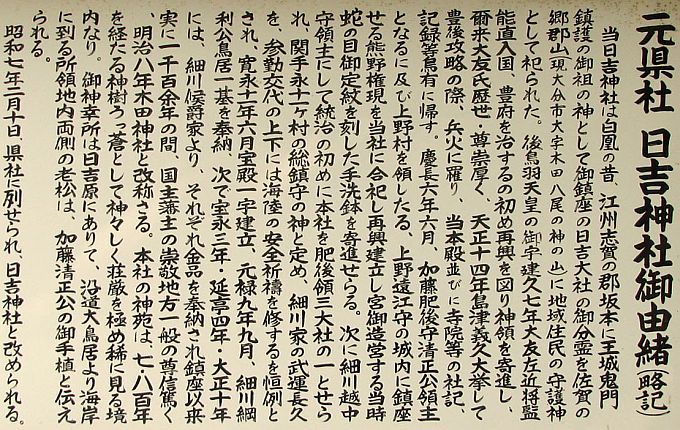 元県社 日吉神社御由緒(略記)
当日吉神社は白凰の昔、江州志賀の郡坂本に王城鬼門
鎮護の御祖の神として御鎮座の日吉大社の御分霊を佐賀の
郷郡山(現大分市大字木田 八尾の神の山)に地域住民の守護神
として祀られた。後鳥羽天皇の御宇建久七年大友左近将監
能直入国、豊府を治するの初め再興を図り神領を寄進し、
爾来大友氏歴世 尊崇厚く、天正十四年島津義久大挙して
豊後攻略の際、兵火に罹り、当本殿並びに寺院等の社記、
記録等烏有に帰す。慶長六年六月、加藤肥後守清正公領主
となるに及び上野村を領したる、上野遠江守の城内に鎮座
せる熊野権現を当社に合祀し再興建立し宮御造営する当時
蛇の目御定紋を刻した手洗鉢を寄進せらる。次に細川越中
守領主にして統治の初めに本社を肥後領三大社の一とせら
れ、関手永十一ヶ村の総鎮守の神と定め、細川家の武運長久
を、参勤交代の上下には海陸の安全祈禱を修するを恒例と
され、寛永十一年六月宝殿一宇建立、元禄九年九月、細川綱
利公鳥居一基を奉納、次で宝永三年・延享四年・大正十年
には、細川侯爵家より、それぞれ金品を奉納され鎮座以来
実に一千百余年の間、国主藩主の崇敬地方一般の尊信篤く
、明治八年木田神社と改称さる。本社の神苑は、七・八百年
を経たる神樹うっ蒼として神々しく荘厳を極め稀に見る境
内なり。御神幸所は日吉原にありて、沿道大鳥居より海岸
に到る所領地内両側の老松は、加藤清正公の御手植と伝え
られる。
昭和七年二月十日 県社に列せられ、日吉神社と改められる。